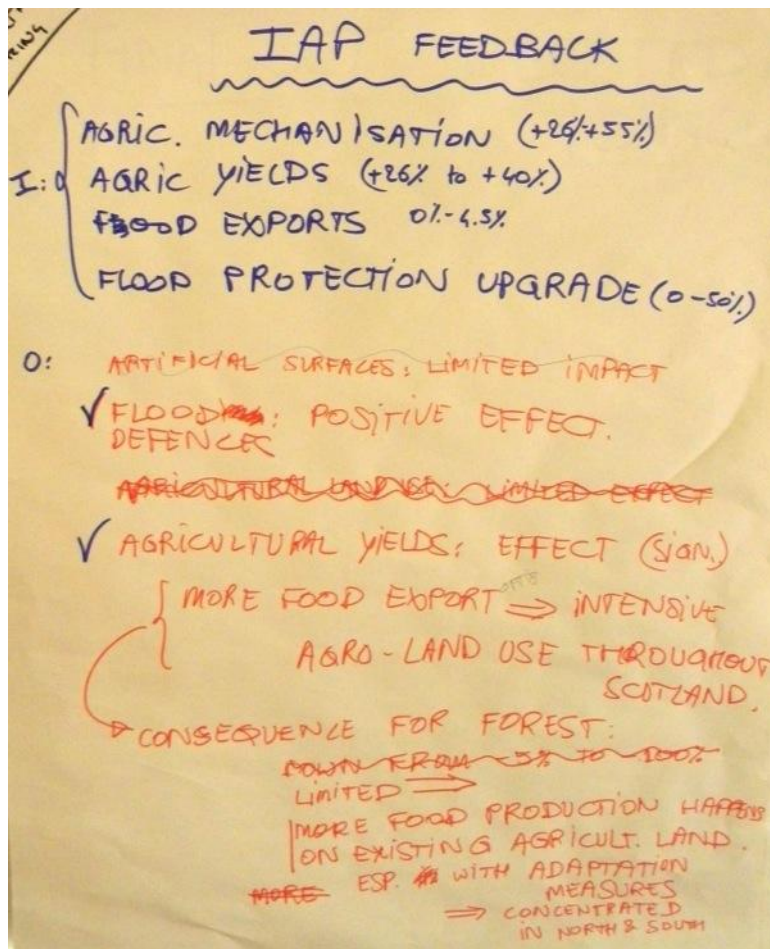 IAP FEEDBACK
AGRIC. MECHANISATION (+26%+55%)
I: AGRIC YIELDS (+26% to +40%)
FOOD EXPORTS 0%-4.5%
FLOOD PROTECTION UPGRADE (0-50%)
O: ARTIFICIAL SURFACES: LIMITED IMPACT
✓ FLOOD : POSITIVE EFFECT.
DEFENCES
AGRICULTURAL LAND USE: LIMITED EFFECT
✓ AGRICULTURAL YIELDS: EFFECT (SIGN.)
MORE FOOD EXPORT ⇒ INTENSIVE
AGRO-LAND USE THROUGHOUT
SCOTLAND.
CONSEQUENCE FOR FOREST:
DOWN FROM -5% TO -100%
LIMITED ⇒
MORE FOOD PRODUCTION HAPPENS
ON EXISTING AGRICULT. LAND.
MORE ESP. WITH ADAPTATION
MEASURES
⇒ CONCENTRATED
IN NORTH & SOUTH